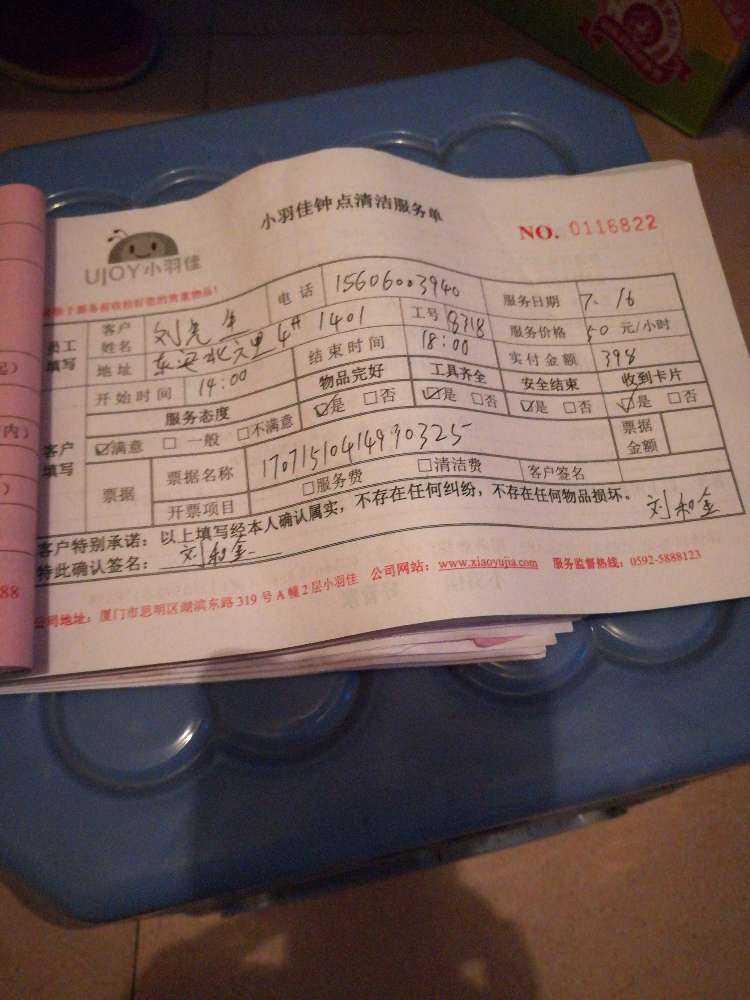 小羽佳钟点清洁服务单
NO. 0116822
UJOY小羽佳
员工填写 客户姓名 刘先生 电话 15606003940 服务日期 7.16
地址 4# 1401 工号 8318 服务价格 50 元/小时
开始时间 14:00 结束时间 18:00 实付金额 398
服务态度 物品完好 工具齐全 安全结束 收到卡片
客户填写 ☑满意 □一般 □不满意 ☑是 □否 ☑是 □否 ☑是 □否 ☑是 □否
票据 票据名称 票据金额
开票项目 □服务费 □清洁费 客户签名
客户特别承诺：以上填写经本人确认属实，不存在任何纠纷，不存在任何物品损坏。
特此确认签名： 刘和金 刘和金
公司地址：厦门市思明区湖滨东路 319 号 A 幢 2 层小羽佳 公司网站：www.xiaoyujia.com 服务监督热线：0592-5888123